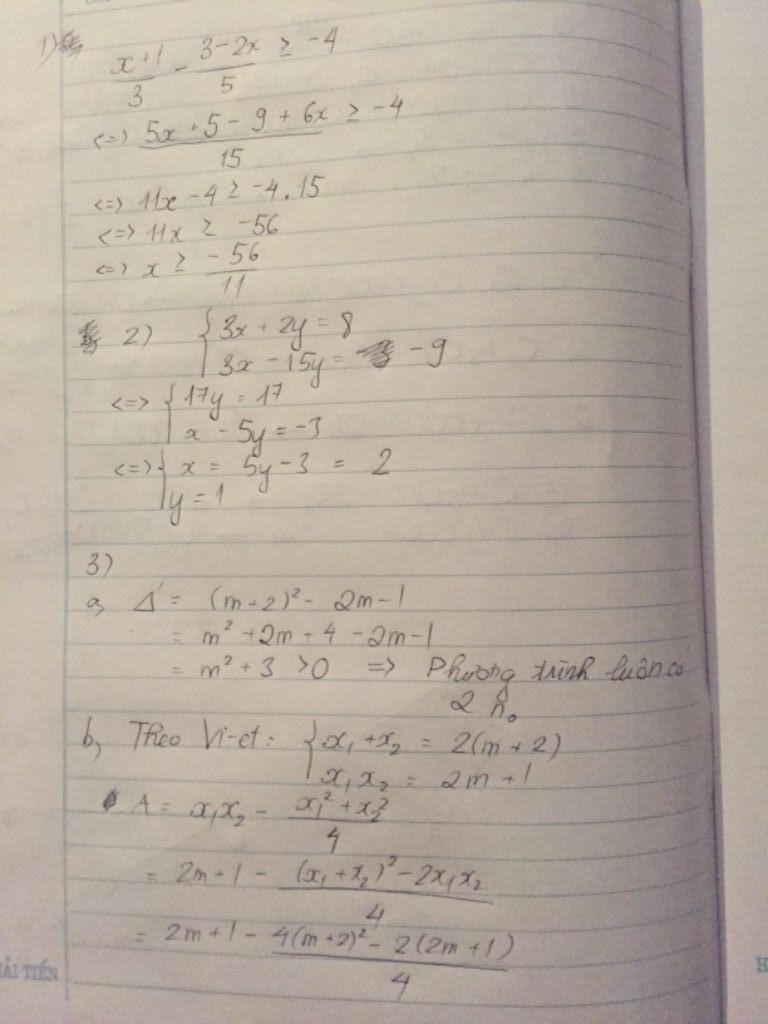 1)
x+1/3 - 3-2x/5 ≥ -4
<=> 5x+5-9+6x/15 ≥ -4
<=> 11x -4 ≥ -4.15
<=> 11x ≥ -56
<=> x ≥ -56/11
2) { 3x + 2y = 8
3x - 15y = -9
<=> { 17y = 17
x - 5y = -3
<=> { x = 5y-3 = 2
y = 1
3)
a, Δ' = (m+2)² - 2m-1
= m² + 2m + 4 - 2m-1
= m² + 3 > 0 => Phương trình luôn có
2 no
b, Theo Vi-et: { x₁ + x₂ = 2(m+2)
x₁x₂ = 2m+1
A = x₁x₂ - x₁² + x₂²/4
= 2m+1 - (x₁+x₂)² - 2x₁x₂/4
= 2m+1 - 4(m+2)² - 2(2m+1)/4
ẢI TIẾN
H